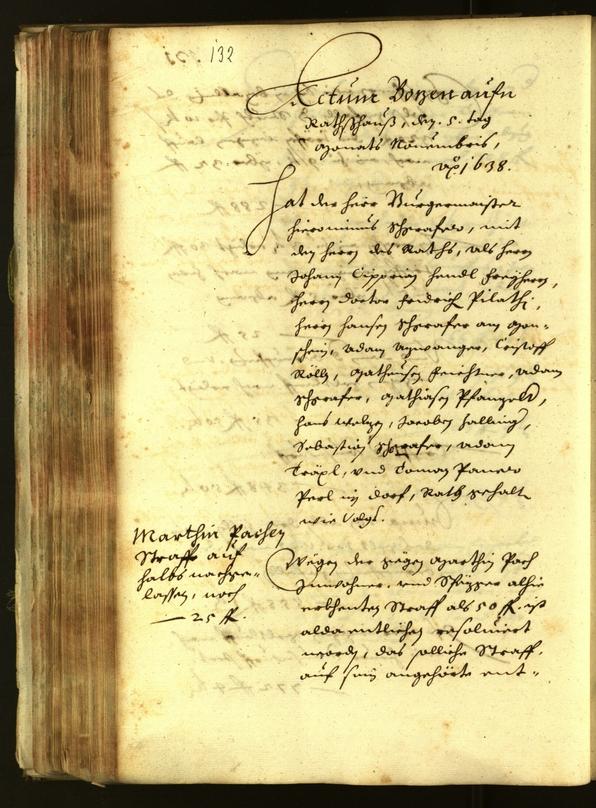 132
Actum Bozen aufm
Rathshauß, den 5. tag
Monats Nouembris,
Ao 1638.
Hat der herr Burgermaister
Hieronimus Schrafer, mit
den herrn des Raths, als herrn
Johann Cipprian Hendl freyherrn,
herrn doctor fridrich Pilathi,
herrn hansen Schrafer am Mon-
schein, Adam Anwanger, Cristoff
Röll, Matheusen feichtner, Adam
Schrafer, Mathiasen Pfangeld,
hans Welzen, Jacoben Salling,
Sebastian Schrafer, Adam
Träxl, und Toman Panero
im dorf, Rath gehalten
wie Volgt.
Marthin Pachen
Straff auf
halbs nachge-
lassen, noch
— 25 fl.
Wegen der gegen Marthin Pach
Innwohner und alhie
Straff als 50 fl. ist
alda entlichen resoluiert
worden, das solliche Straff
auf sein angehörte ent-